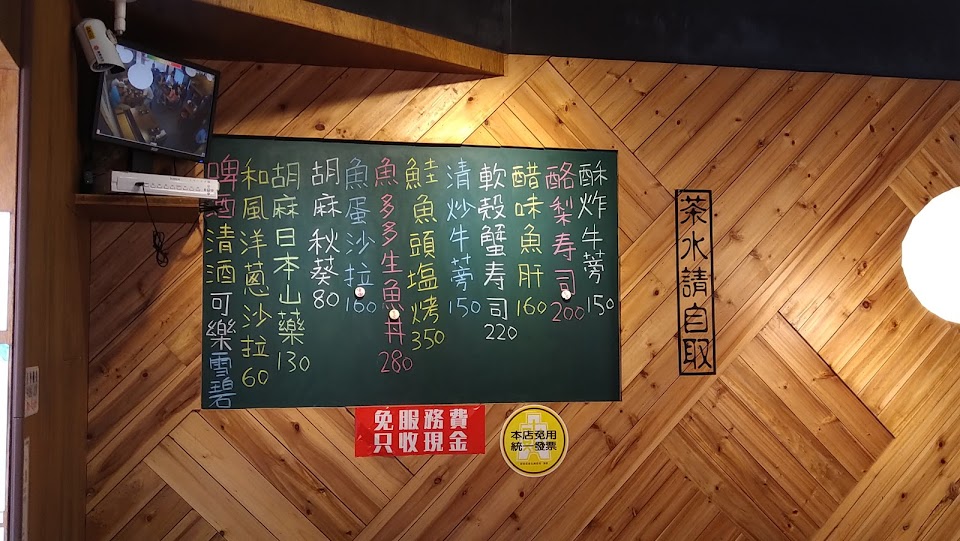 酥炸牛蒡150
酪梨寿司200
醋味魚肝160
軟殼蟹寿司220
清炒牛蒡150
鮭魚頭塩烤350
魚多多生魚丼280
魚蛋沙拉160
胡麻秋葵80
胡麻日本山藥130
和風洋蔥沙拉60
啤酒清酒可樂雪碧
茶水請自取
免服務費
只收現金
本店免用
統一發票